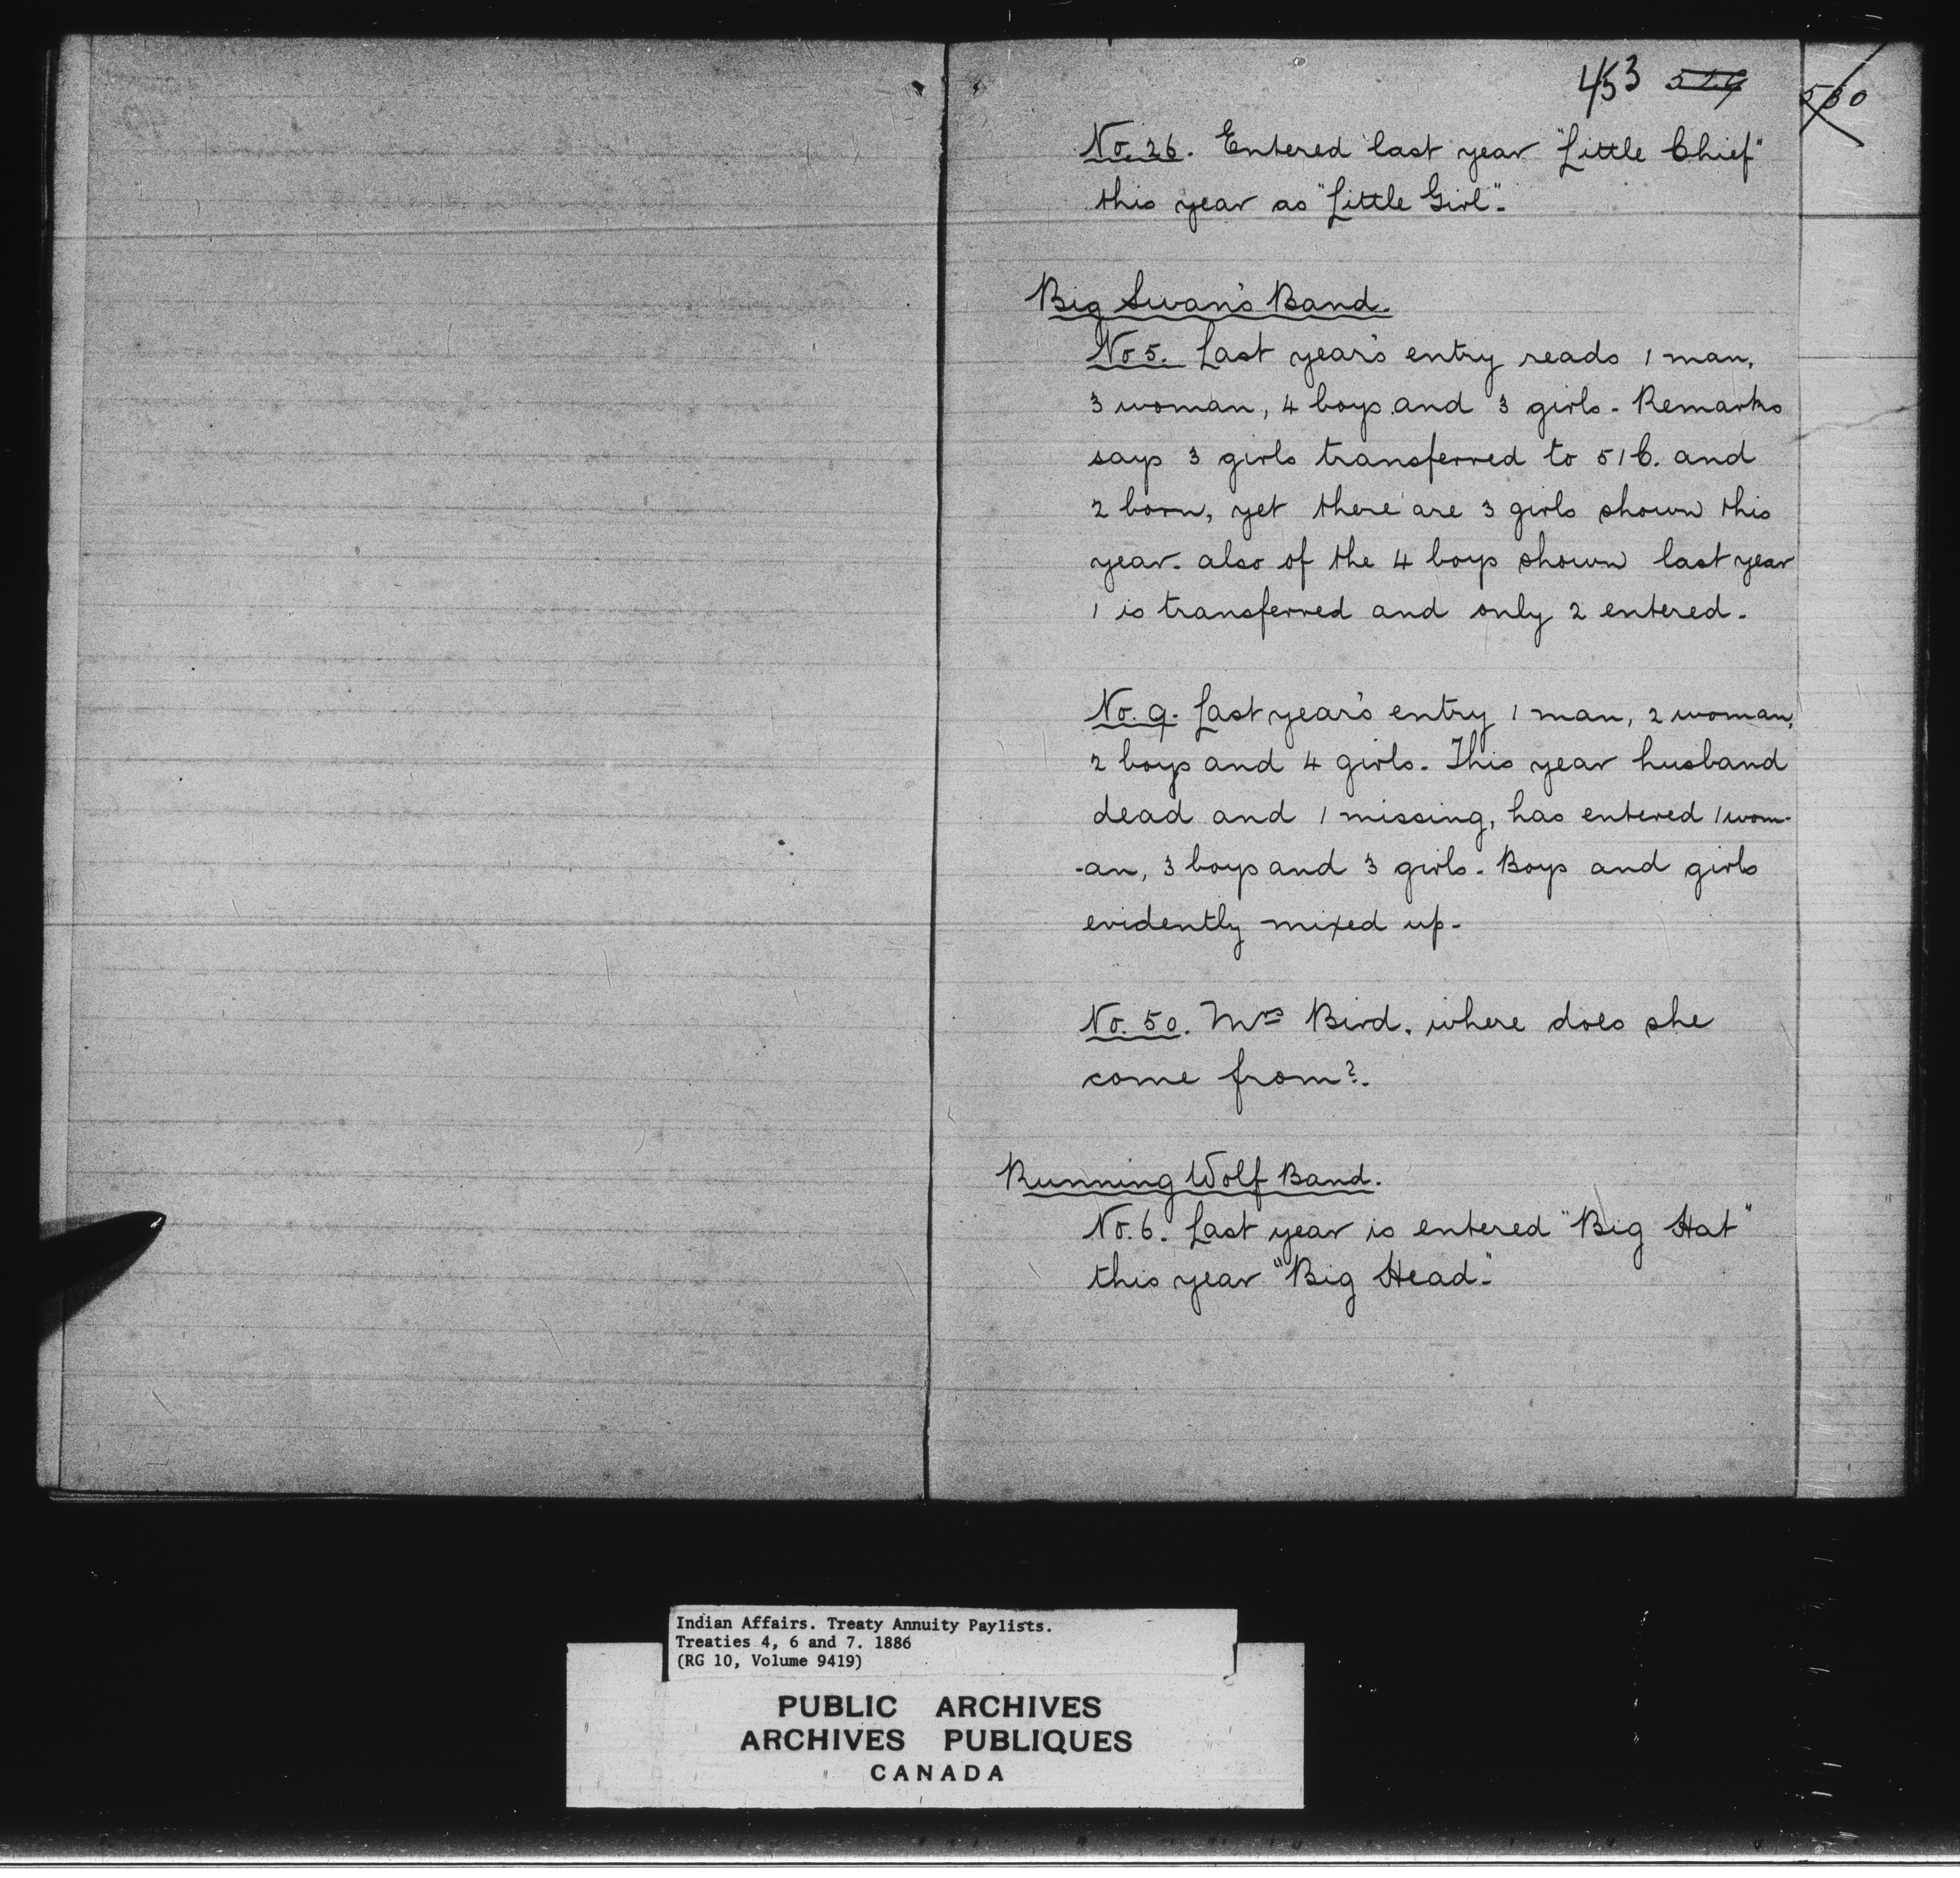 453 526
530
No. 26. Entered last year "Little Chief"
this year as "Little Girl".
Big Swan's Band.
No 5. Last year's entry reads 1 man,
3 woman, 4 boys and 3 girls. Remarks
says 3 girls transferred to 51 C. and
2 born, yet there are 3 girls shown this
year. also of the 4 boys shown last year
1 is transferred and only 2 entered.
No. 9. Last year's entry 1 man, 2 woman,
2 boys and 4 girls. This year husband
dead and 1 missing, has entered 1 wom-
-an, 3 boys and 3 girls. Boys and girls
evidently mixed up.
No. 50. Mrs Bird, where does she
come from?.
Running Wolf Band.
No. 6. Last year is entered "Big Hat"
this year "Big Head."
Indian Affairs. Treaty Annuity Paylists.
Treaties 4, 6 and 7. 1886
(RG 10, Volume 9419)
PUBLIC ARCHIVES
ARCHIVES PUBLIQUES
CANADA